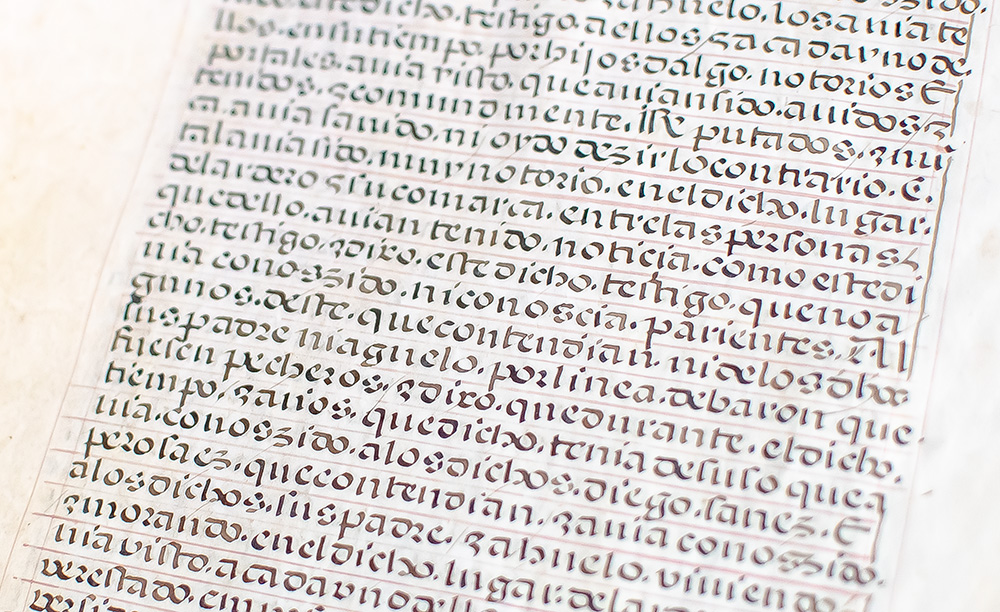 dicho. testigo. aellos zacadavnode
llos. ensutiempo. porhijosdalgo. notorios E
portales. auia visto. queauiansido. auidos z
tenidos. z comunmente. rreputados. z nũ
ca. auia sauido. ni oydo dezir lo contrario. E.
talauiasido. muynotorio. eneldicho. lugar.
z su comarca. entrelas personas z
quedello. auian tenido. noticia. como estedi
cho. testigo. z dixo. este dicho. testigo. queno a
uia conoszido. niconoscia. parientes. Al
gunos. deste. quecontendian. nidelos dhos
sus padre niaguelo. porlinea. debaron que
fuesen pecheros. z dixo. quedurante. eldicho.
tiempo. z años. quedicho. tenia desuso que a
uia. conoszido. alosdichos. diego. sanez. E
pero saez. quecontendian. z auia conoszido.
alosdichos. sus padre. z ahuelo. viuiendo
z morando. eneldicho. lugar. dela
uia visto. acadavnodellos